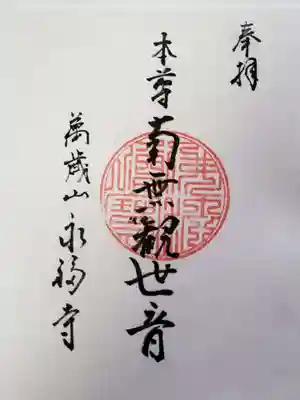 奉拝
本尊 南無観世音
萬歳山 永福寺